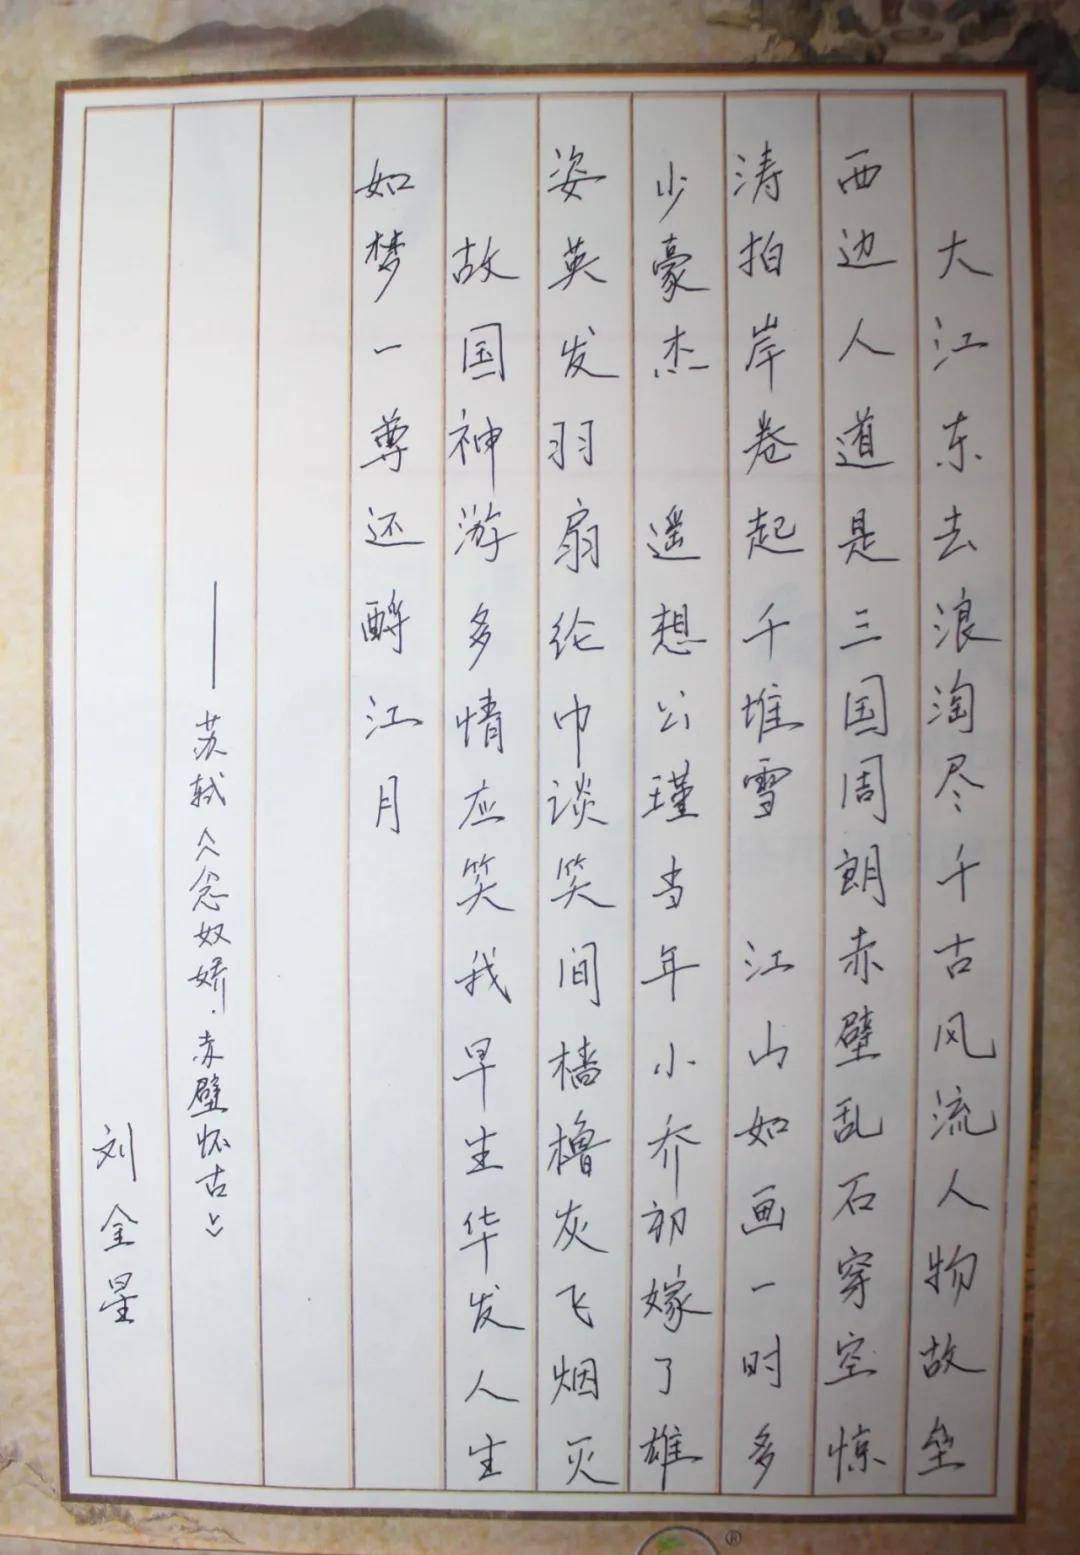 大江东去浪淘尽千古风流人物故垒
西边人道是三国周朗赤壁乱石穿空惊
涛拍岸卷起千堆雪 江山如画一时多
少豪杰 遥想公瑾当年小乔初嫁了雄
姿英发羽扇纶巾谈笑间樯橹灰飞烟灭
故国神游多情应笑我早生华发人生
如梦一尊还酹江月
——苏轼《念奴娇·赤壁怀古》
刘全星
®